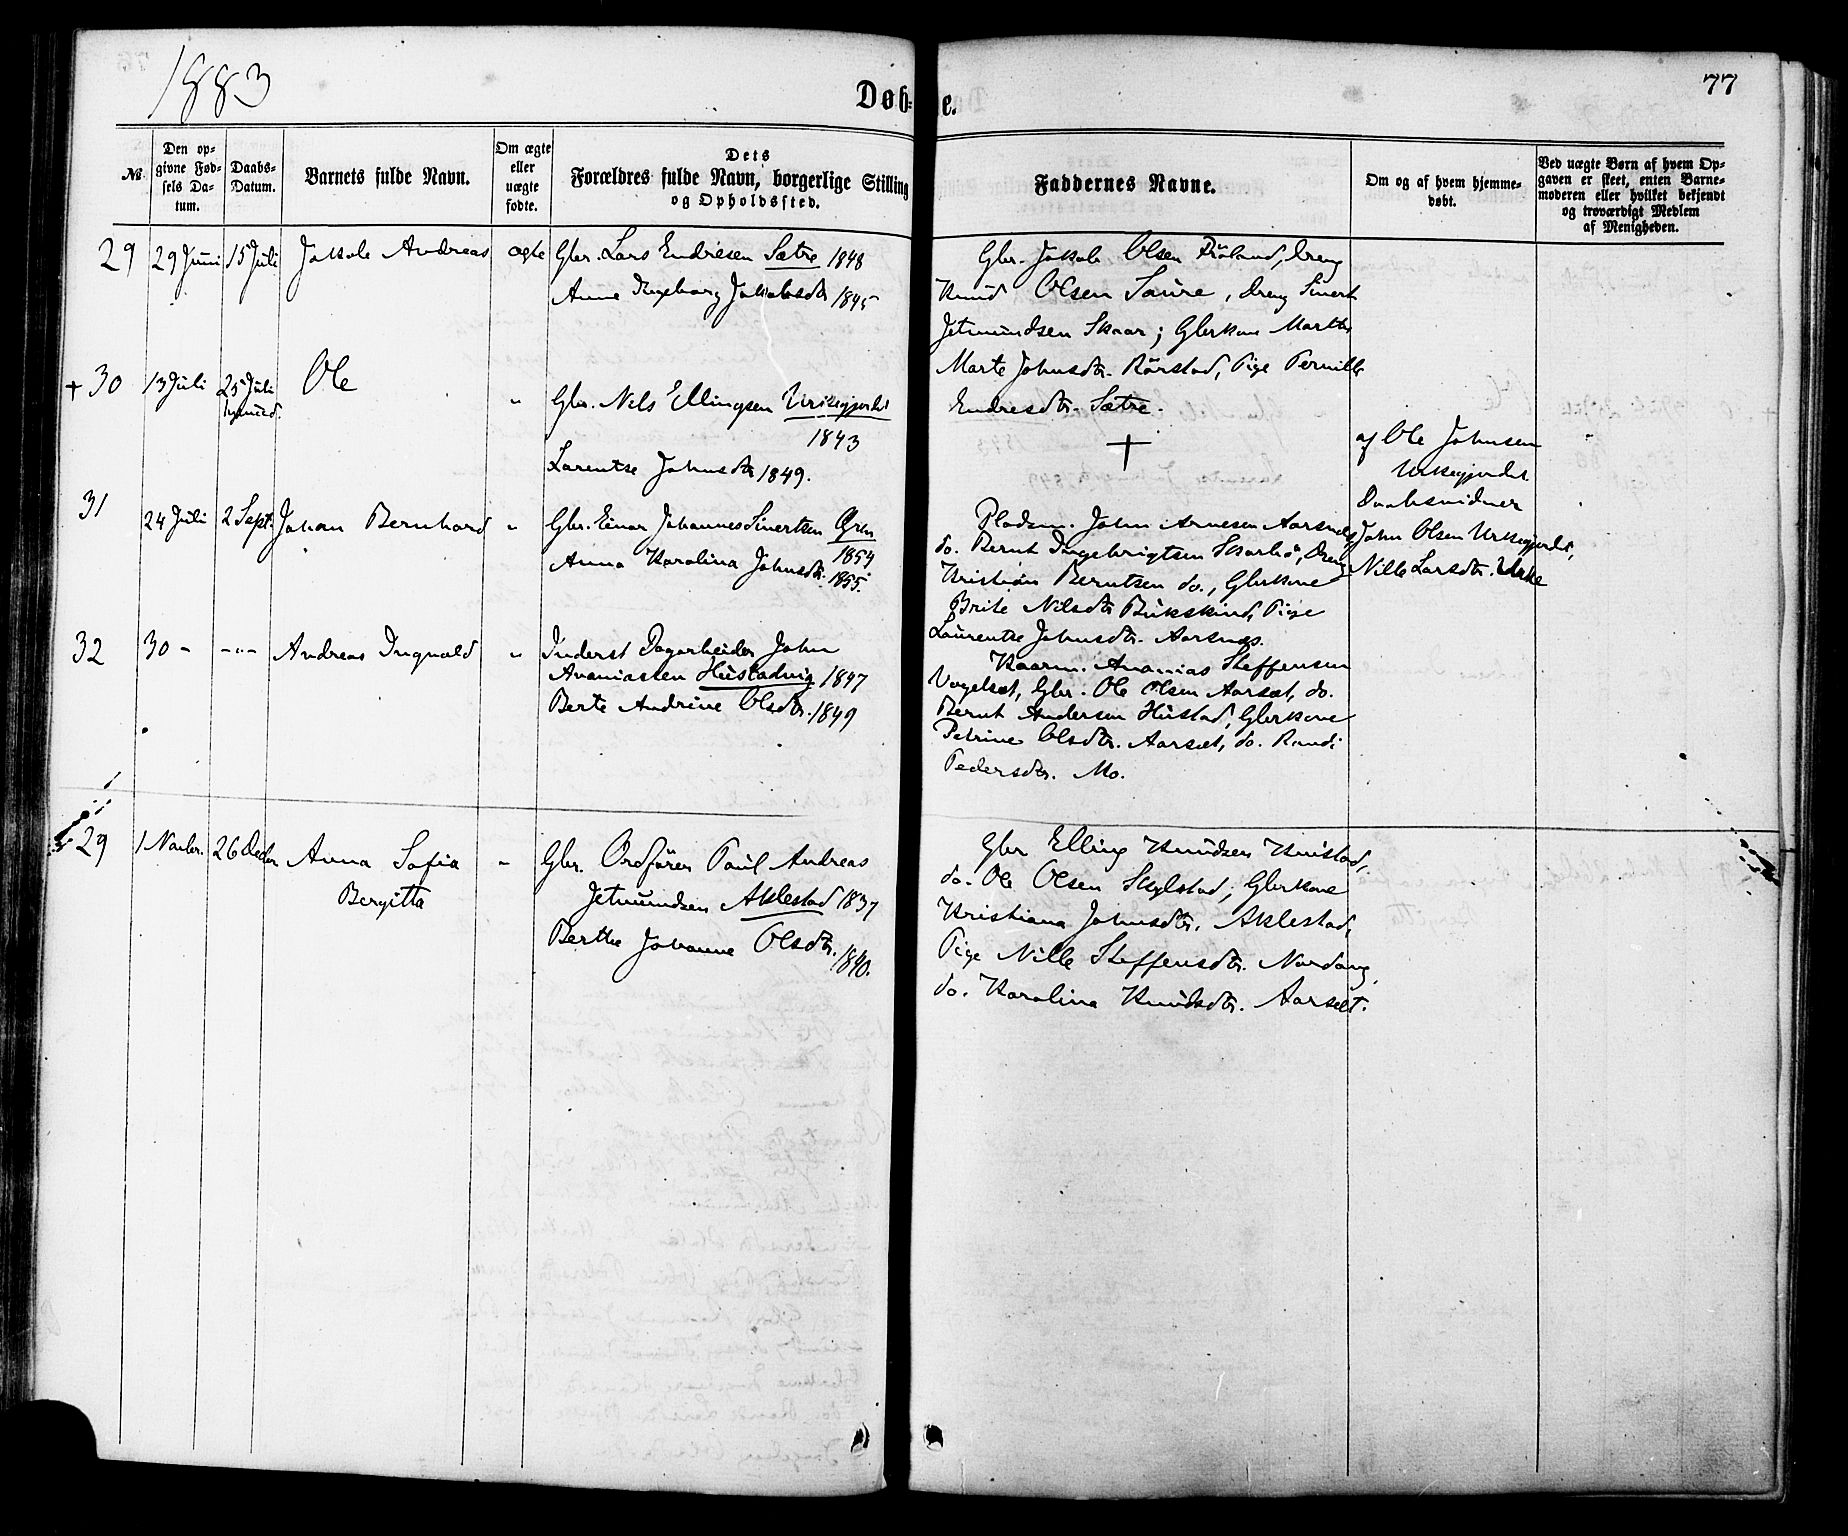 1883
Døb-
te.
77
№
Den op-
givne Fød-
sels Da-
tum.
Daabs-
Datum.
Barnets fulde Navn.
Om ægte
eller
uægte
fødte.
Dets
Forældres fulde Navn, borgerlige Stilling
og Opholdssted.
Faddernes Navne.
Om og af hvem hjemme-
døbt.
Ved uægte Børn af hvem Op-
gaven er skeet, enten Barne-
moderen eller hvilket bekjendt
og troværdigt Medlem
af Menigheden.
29
29 Juni
15 Juli
Jakob Andreas
ægte
Gbr. Lars Endresen Sætre 1848
Anne Ingeborg Jakobsdtr 1845
Gbr. Jakob Olsen Dreng
Knud Olsen Saure, Dreng Sivert
Jetmundsen Skaar; Gbrkone Marthe
Marte Johnsdtr. Rørstad, Pige Pernille
Endresdtr. Sætre.
+ 30
13 Juli
25 Juli
Ole
"
Gbr. Nils Ellingsen Urkegjerdet
1843
Larentse Johnsdtr 1849.
+
af Ole Johnsen
Urkegjerdet
Daabsvidner
John Olsen Urkegjerdet,
Nille Larsdtr. Urke
31
24 Juli
2 Sept.
Johan Bernhard
"
Gbr. Einar Johannes Sivertsen Øren
1854
Anna Karolina Johnsdtr. 1855.
Pladsm. John Arnesen Aarsnes,
do. Bernt Ingebrigtsen Skarbø, Dreng
Kristian Berntsen do., Gbrkone
Brite Nilsdtr Bukskind, Pige
Laurentse Johnsdtr. Aarsnæs.
32
30 -
-"-
Andreas Ingvald
"
Inderst Dagarbeider John
Ananiassen Hustadvig 1847
Berte Andrine Olsdtr. 1849
Kaarm. Ananias Steffensen
Vogelsæt, Gbr. Ole Olsen Aarsæt, do.
Bernt Andersen Hustad, Gbrkone
Petrine Olsdtr. Aarsæt, do. Randi
Pedersdtr. Mo.
29
1 Novbr.
26 Decbr
Anna Sofia
Bergitta
"
Gbr. Ordfører Paul Andreas
Jetmundsen Aklestad 1837
Berthe Johanne Olsdtr. 1840.
Gbr Elling Knudsen Hustad,
do. Ole Olsen Skylstad, Gbrkone
Kristiana Johnsdtr. Aklestad,
Pige Nille Steffensdtr. Nordang,
do. Karolina Knudsdtr. Aarsæt.